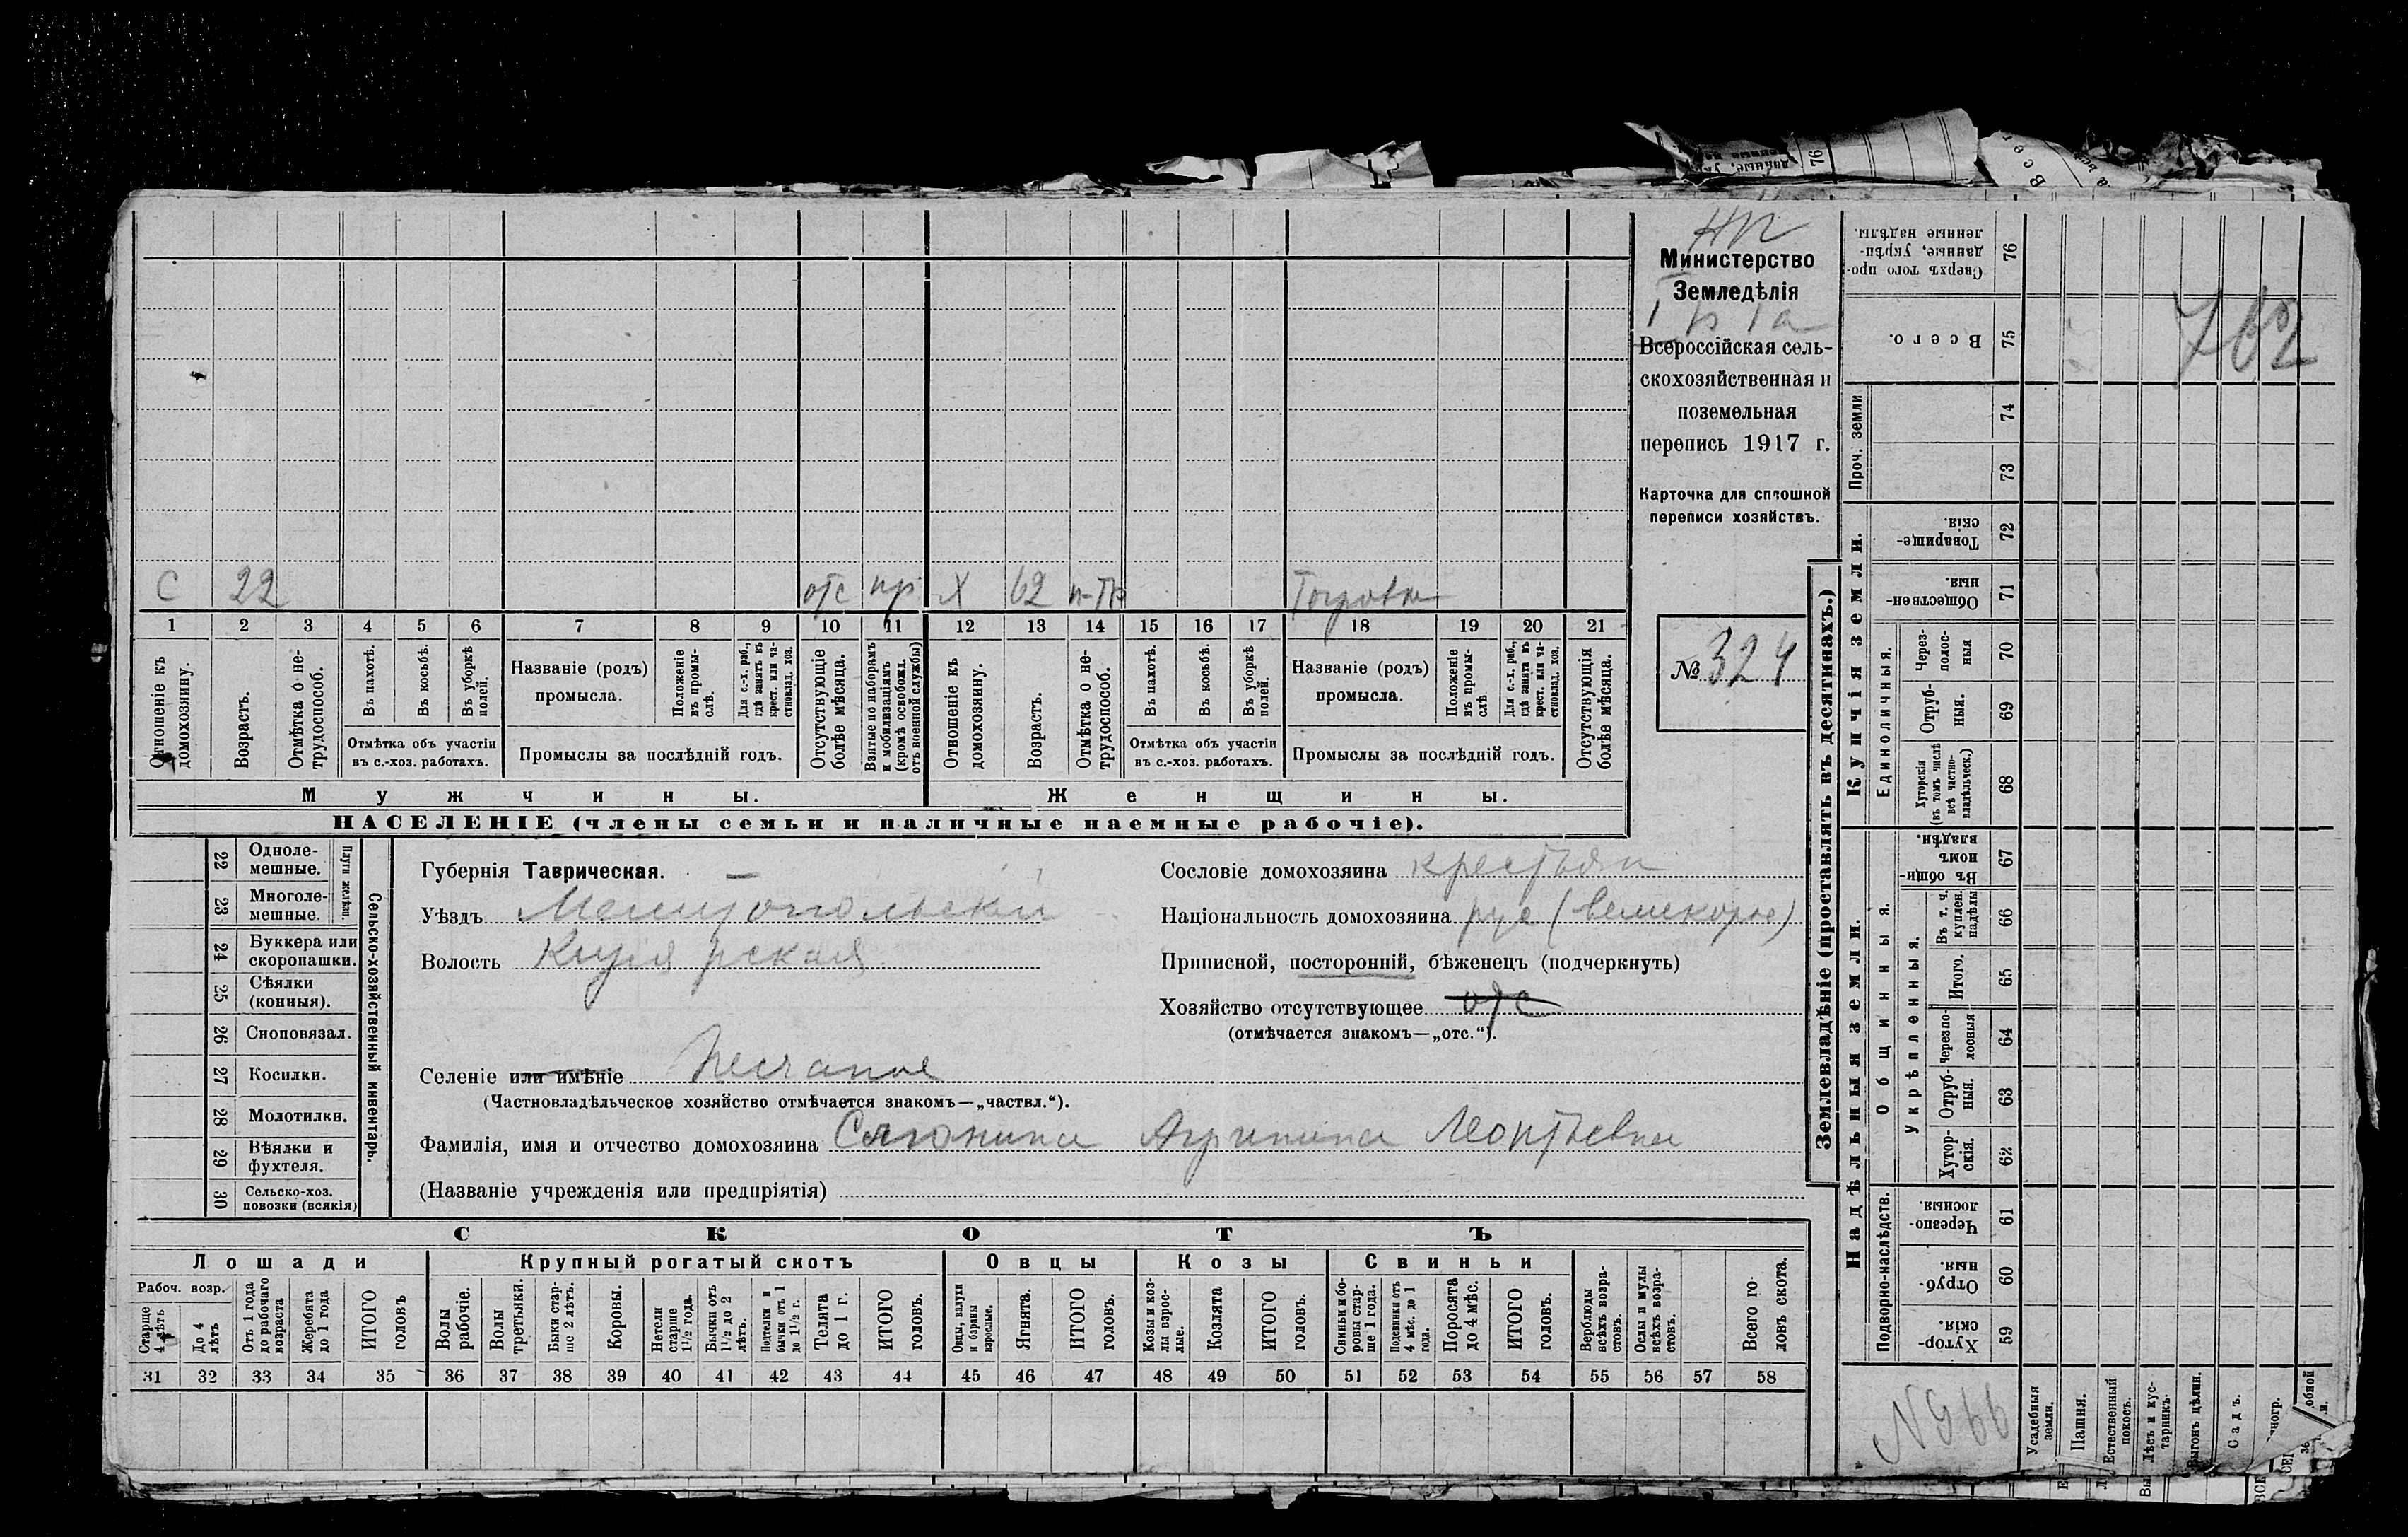 Министерство
Земледѣлія
Всероссійская сель-
скохозяйственная и
поземельная
перепись 1917 г.
Карточка для сплошной
переписи хозяйствъ.
№ 324
С 22 отс пр Х 62 Торговка
1 2 3 4 5 6 7 8 9 10 11 12 13 14 15 16 17 18 19 20 21
Отношеніе къ домохозяину.
Возрастъ.
Отмѣтка о не-трудоспособ.
Въ пахотѣ.
Въ косьбѣ.
Въ уборкѣ полей.
Отмѣтка объ участіи
въ с.-хоз. работахъ.
Названіе (родъ)
промысла.
Положеніе въ промы-слѣ.
Для с.-х. раб., гдѣ занятъ въ крест. или ча-стновлад. хоз.
Промыслы за послѣдній годъ.
Отсутствующіе болѣе мѣсяца.
Взятые по наборамъ и мобилизаціямъ (кромѣ освобожд. отъ военной службы)
Отношеніе къ домохозяину.
Возрастъ.
Отмѣтка о не-трудоспособ.
Въ пахотѣ.
Въ косьбѣ.
Въ уборкѣ полей.
Отмѣтка объ участіи
въ с.-хоз. работахъ.
Названіе (родъ)
промысла.
Положеніе въ промы-слѣ
Для с.-х. раб., гдѣ занятъ въ крест. или ча-стновлад. хоз.
Промыслы за послѣдній годъ.
Отсутствующія болѣе мѣсяца.
Мужчины.
Женщины.
НАСЕЛЕНІЕ (члены семьи и наличные наемные рабочіе).
Сельско-хозяйственный инвентарь.
Плуги желѣзн.
22 Одноле-мешные.
23 Многоле-мешные.
24 Буккера или скоропашки.
25 Сѣялки (конныя).
26 Сноповязал.
27 Косилки.
28 Молотилки.
29 Вѣялки и фухтеля.
30 Сельско-хоз. повозки (всякія)
Губернія Таврическая.
Уѣздъ Мелитопольскій
Волость
Селеніе или имѣніе Песчаное
(Частновладѣльческое хозяйство отмѣчается знакомъ—„частвл.“).
Фамилія, имя и отчество домохозяина Агрипина Леонтьевна
(Названіе учрежденія или предпріятія)
Сословіе домохозяина крестьян
Національность домохозяина рус (великорос)
Приписной, посторонній, бѣженецъ (подчеркнуть)
Хозяйство отсутствующее отс
(отмѣчается знакомъ—„отс.“).
СКОТЪ
Лошади
Крупный рогатый скотъ
Овцы
Козы
Свиньи
Рабоч. возр.
Старше 4 лѣтъ
До 4 лѣтъ
Отъ 1 года до рабочаго возраста
Жеребята до 1 года
ИТОГО головъ
Волы рабочіе.
Волы третьяки.
Быки стар-ше 2 лѣтъ.
Коровы.
Нетели старше 1½ года.
Бычки отъ 1½ до 2 лѣтъ.
Подтелки и бычки отъ 1 до 1½ г.
Телята до 1 г.
ИТОГО головъ.
Овцы, валухи и бараны взрослые.
Ягнята.
ИТОГО головъ.
Козы и коз-лы взрос-лые.
Козлята
ИТОГО головъ.
Свиньи и бо-ровы стар-ше 1 года.
Подсвинки отъ 4 мѣс. до 1 года.
Поросята до 4 мѣс.
ИТОГО головъ.
Верблюды всѣхъ возра-стовъ.
Ослы и мулы всѣхъ возра-стовъ.
Всего го-ловъ скота.
31 32 33 34 35 36 37 38 39 40 41 42 43 44 45 46 47 48 49 50 51 52 53 54 55 56 57 58
Землевладѣніе (проставлять въ десятинахъ.)
Надѣльныя земли.
Купчія земли.
Проч. земли
Сверхъ того про-данные, укрѣп-ленные надѣлы. 76
Всего. 75
74
73
Товарище-скія. 72
Обществен-ныя. 71
Единоличныя.
Через-полос-ныя 70
Отруб-ныя. 69
Хуторскія (въ томъ числѣ всѣ частно-владѣльческ.) 68
Общинныя.
Въ общи-номъ владѣн. 67
Укрѣпленныя.
Въ т. ч. куплен. надѣлы 66
Итого. 65
Черезпо-лосныя 64
Отруб-ныя. 63
Хутор-скія. 62
Подворно-наслѣдств.
Черезпо-лосныя 61
Отруб-ныя. 60
Хутор-скія. 59
Усадебныя земли.
Пашня.
Естественный покосъ.
Лѣсъ и кус-тарникъ.
Выгонъ цѣлин.
Садъ.
762